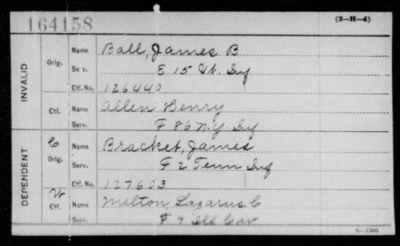 164158
(3-H-4)
INVALID
Orig.
Name Ball, James B
Serv. E 15 Vt. Inf
Ctf. No. 126440
Ctf.
Name Allen Henry
Serv. F 86 N.Y. Inf
DEPENDENT
Orig.
Name Bracket, James
Serv. F 2 Tenn Inf
Ctf. No. 127603
Ctf.
Name Melton Lazarus C
F 7 Ill Cav